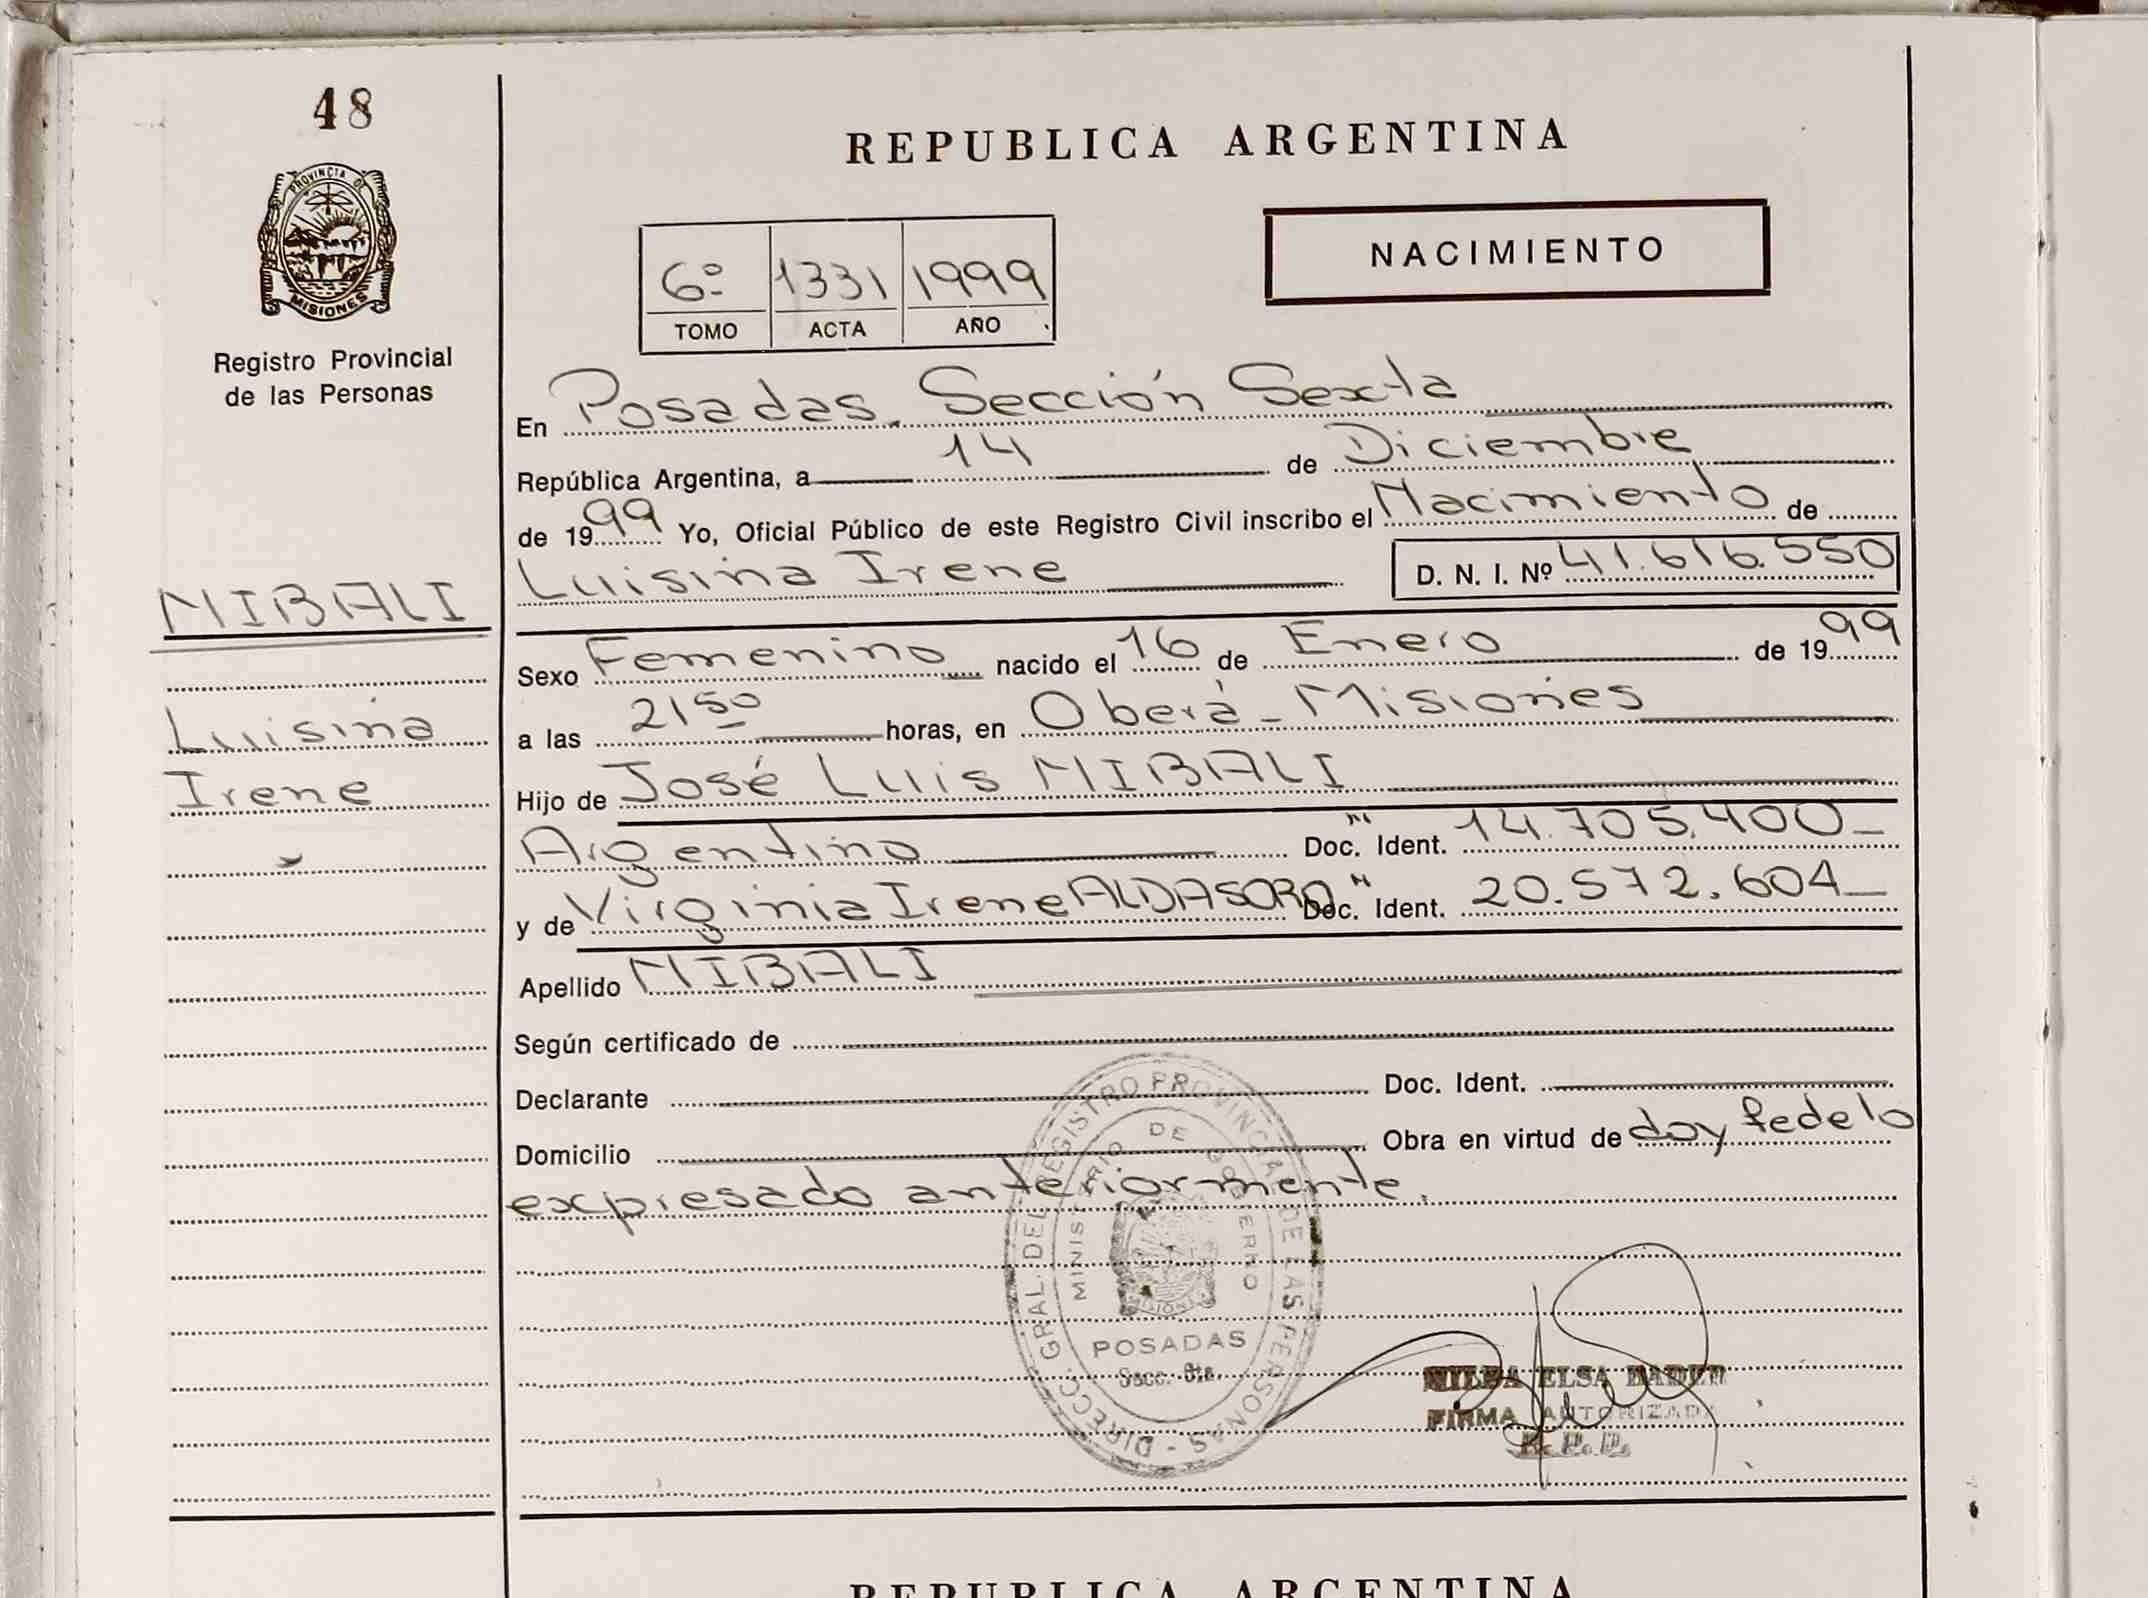 48
PROVINCIA DE
MISIONES
Registro Provincial
de las Personas
MIBALI
Luisina
Irene
REPUBLICA ARGENTINA
NACIMIENTO
6º 1331 1999
TOMO ACTA AÑO
En Posadas. Sección Sexta
República Argentina, a 14 de Diciembre
de 1999 Yo, Oficial Público de este Registro Civil inscribo el Nacimiento de
Luisina Irene D. N. I. Nº 41.616.550
Sexo Femenino nacido el 16 de Enero de 1999
a las 21 50 horas, en Oberá - Misiones
Hijo de José Luis MIBALI
Argentino Doc. Ident. 14.705.400_
y de Virginia Irene ALDASORO Doc. Ident. 20.572.604_
Apellido MIBALI
Según certificado de
Declarante Doc. Ident.
Domicilio Obra en virtud de doy fe de lo
expresado anteriormente.
DIRECC. GRAL. DEL REGISTRO PROVINCIAL DE LAS PERSONAS -
MINISTERIO DE GOBIERNO
POSADAS
Secc. 6ta.
ELSA
FIRMA AUTORIZADA
R. P. P.
REPUBLICA ARGENTINA